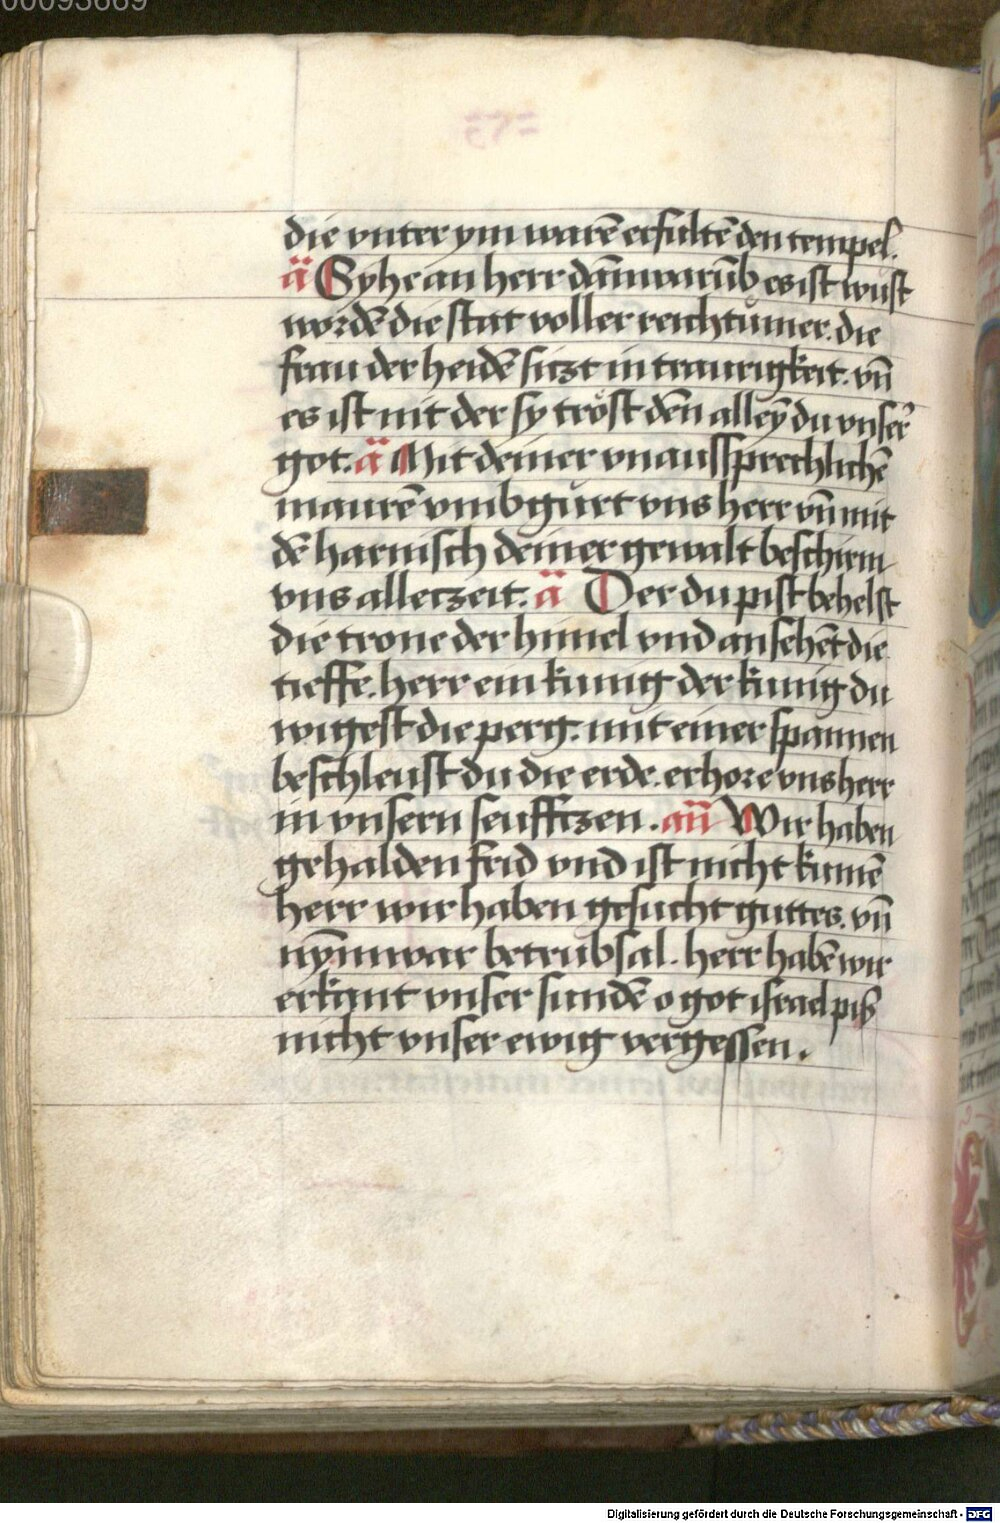 00093669
die vnter ym warē erfultē den tempel.
ä Syhe an herr dan̄ warūb es ist wüst
wordē die stat voller reichtumer. die
frau der heidē sitzt in traurigkeit. vn̄
es ist nit der sy tröst den̄ alleȳ du vnser
got. ä Mit deiner vnaussprechlichē
maurē vmbgürt vns herr vn̄ mit
dē harnisch deiner gewalt beschirm
vns alleczeit. ä Der du pist behelst
die trone der himel vnd ansehēt die
tieffe. herr ein kunig der kunig du
wigest die perg. mit einer spannen
beschleust du die erde. erhore vns herr
in vnsern seufftzen. an̄ Wir haben
gehalden frid vnd ist nicht kumē
herr wir haben gesucht guttes. vn̄
nȳm war betrubsal. herr habē wir
erkant vnser sundē o got israel piß
nicht vnser ewig vergessen.
Digitalisierung gefördert durch die Deutsche Forschungsgemeinschaft - DFG